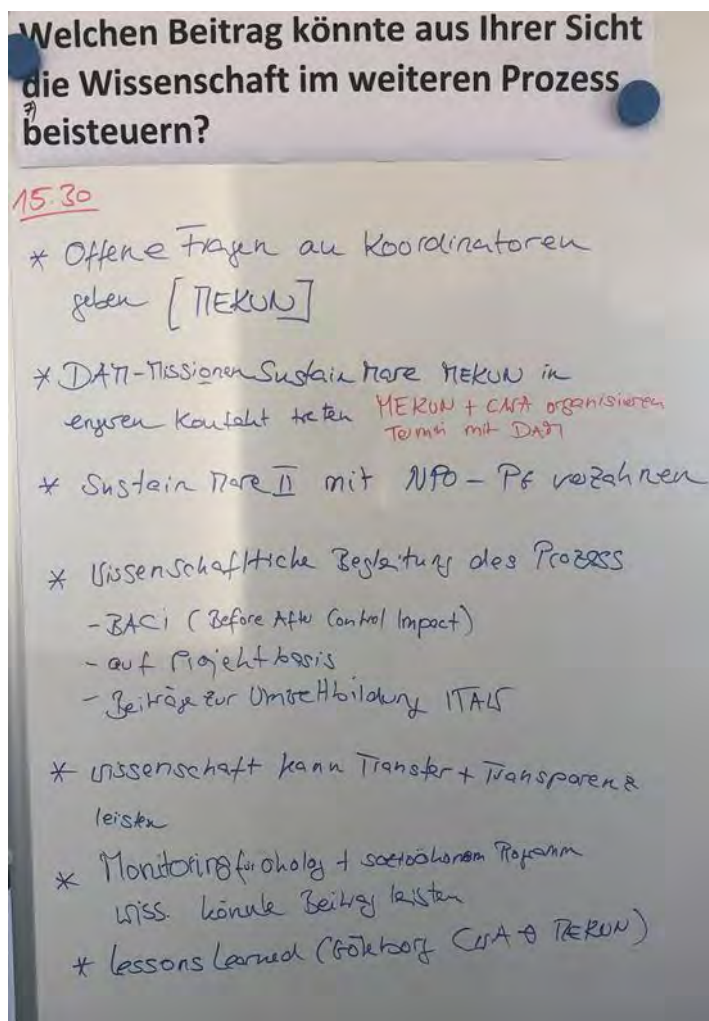 Welchen Beitrag könnte aus Ihrer Sicht
die Wissenschaft im weiteren Prozess
7)
beisteuern?
15.30
* Offene Fragen an Koordinatoren
geben [MEKUN]
* DAM-Missionen Sustain Mare MEKUN in
engeren Kontakt treten MEKUN + CAU organisieren
Termin mit DAM
* Sustain Mare II mit NPO - PG verzahnen
* Wissenschaftliche Begleitung des Prozess
- BACi (Before After Control Impact)
- auf Projektbasis
- Beiträge zur Umweltbildung
* Wissenschaft kann Transfer + Transparenz
leisten
* Monitoring für ökolog + sozioökonom Programm
wiss. könnte Beitrag leisten
* lessons learned (Göteborg CAU MEKUN)